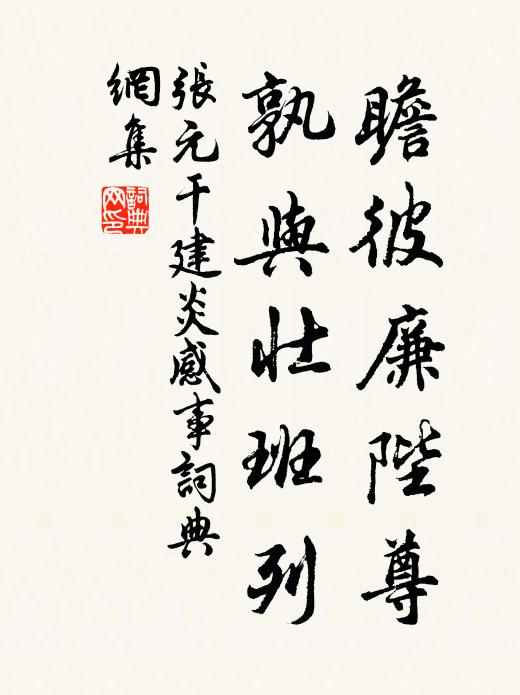 瞻彼廉陛尊
孰與壯班列
張元干建炎感事詞典
網集
詞典网印